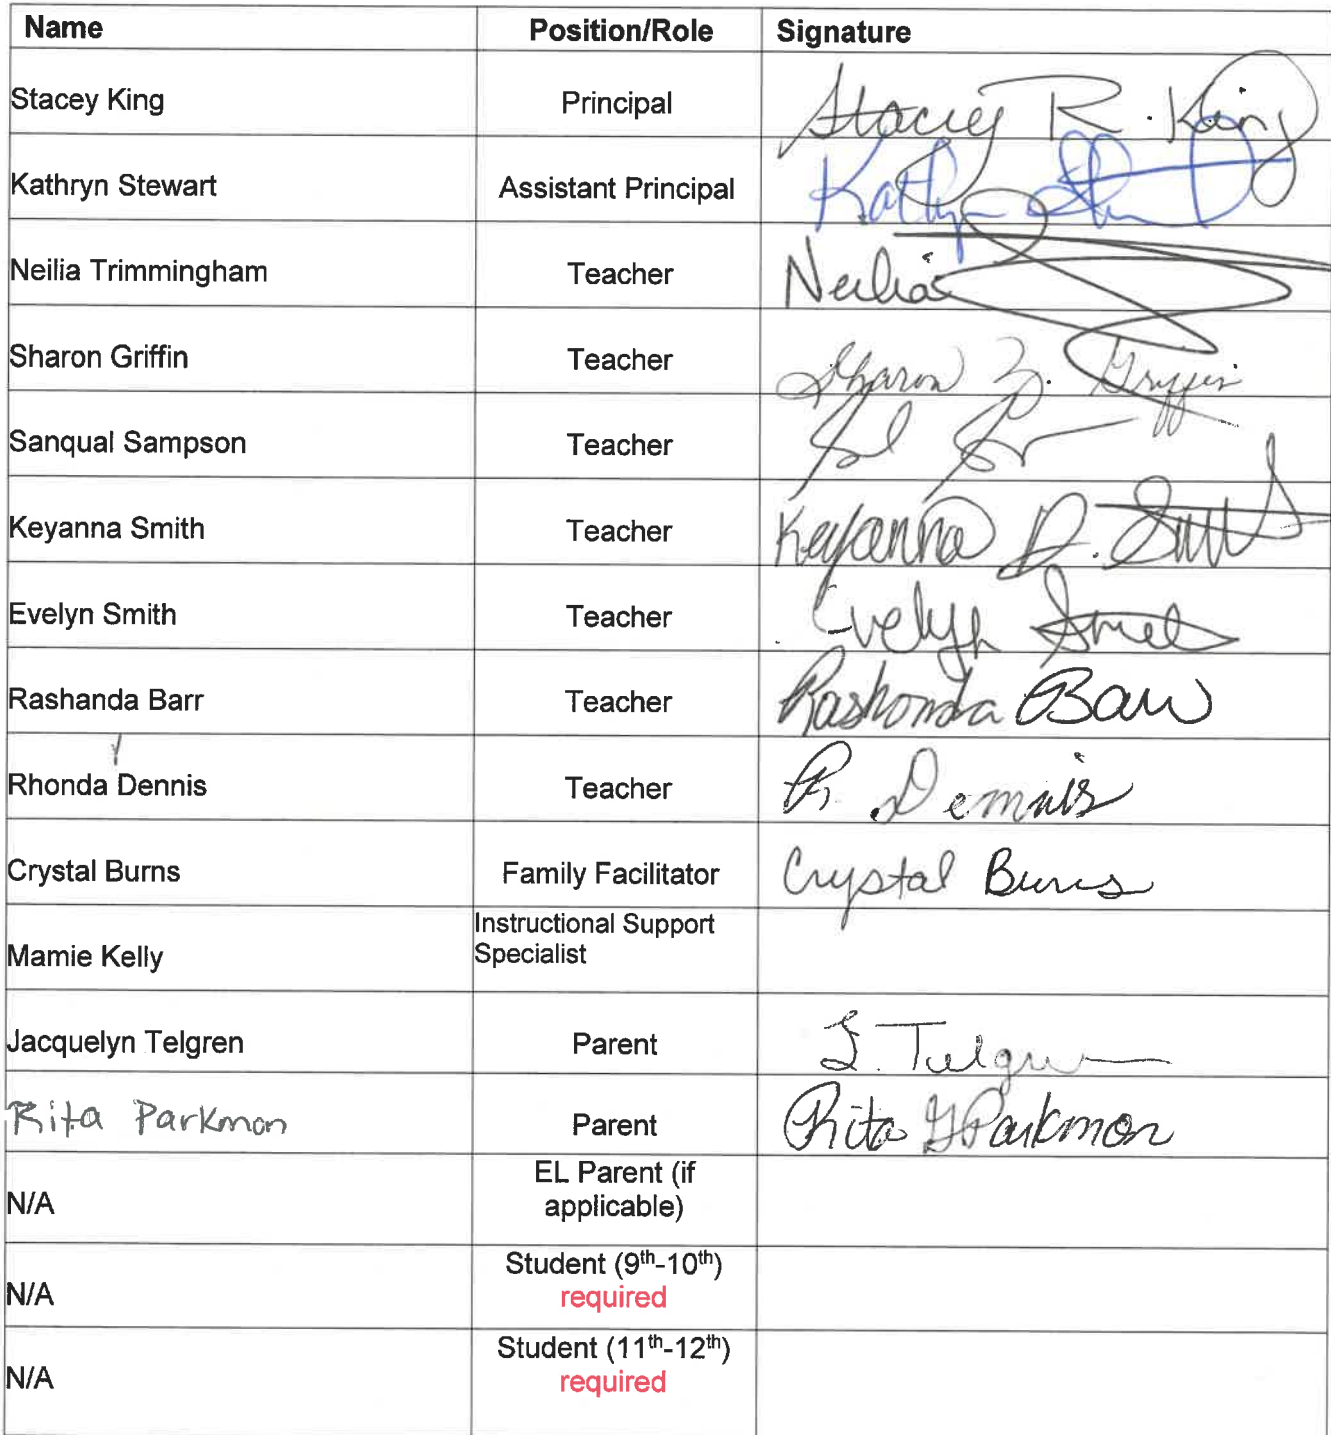 Name Position/Role Signature
Stacey King Principal Stacey R. King
Kathryn Stewart Assistant Principal
Neilia Trimmingham Teacher Neilia
Sharon Griffin Teacher Sharon Z. Griffin
Sanqual Sampson Teacher
Keyanna Smith Teacher Keyanna D. Smith
Evelyn Smith Teacher Evelyn Smith
Rashanda Barr Teacher Rashonda Barr
Rhonda Dennis Teacher R. Dennis
Crystal Burns Family Facilitator Crystal Burns
Instructional Support
Mamie Kelly Specialist
Jacquelyn Telgren Parent J. Telgren
Rita Parkmon Parent Rita G Parkmon
EL Parent (if
N/A applicable)
Student (9th-10th)
N/A required
Student (11th-12th)
N/A required